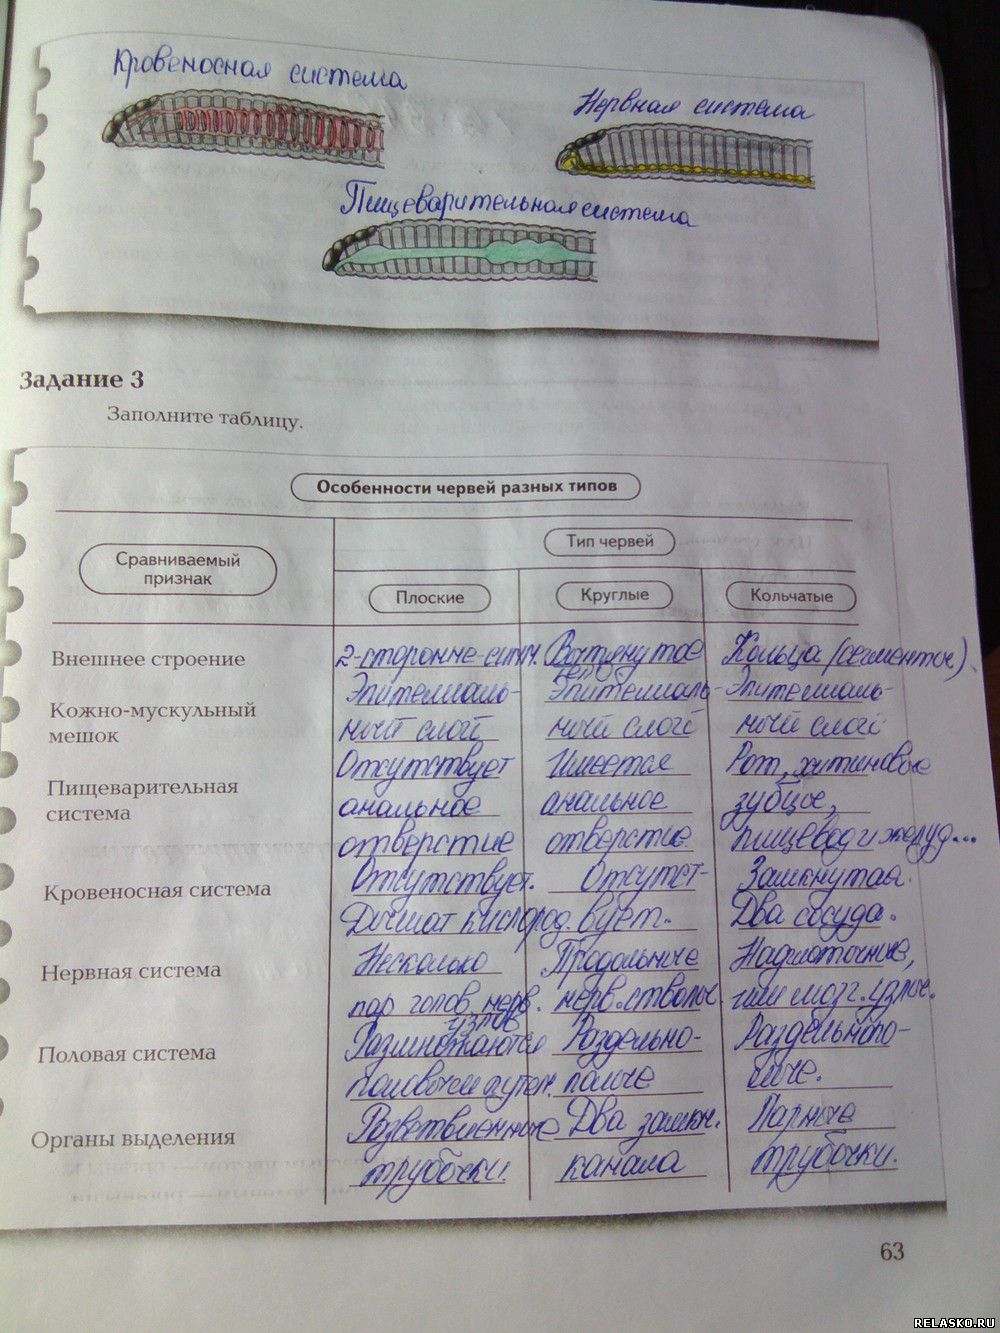 Кровеносная система
Нервная система
Пищеварительная система
Задание 3
Заполните таблицу.
Особенности червей разных типов
Сравниваемый
признак
Тип червей
Плоские
Круглые
Кольчатые
Внешнее строение
2-сторонне-симм.
Вытянутое
тело
Кольца (сегменты).
Кожно-мускульный
мешок
Эпителиаль-
ный слой
Эпителиаль-
ный слой
Эпителиаль-
ный слой
Пищеварительная
система
Отсутствует
анальное
отверстие
Имеется
анальное
отверстие.
Рот, хитиновые
зубцы,
пищевод и желуд...
Кровеносная система
Отсутствует.
Дышат кислород.
Отсутст-
вует.
Замкнутая.
Два сосуда.
Нервная система
Несколько
пар голов. нерв.
узлов
Продольные
нерв. стволы.
Надглоточные,
или мозг. узлы.
Половая система
Размножаются
половым путем.
Раздельно-
полые
Раздельнопо-
лые.
Органы выделения
Разветвленные
трубочки.
Два замкн.
канала
Парные
трубочки.
63
RELASKO.RU